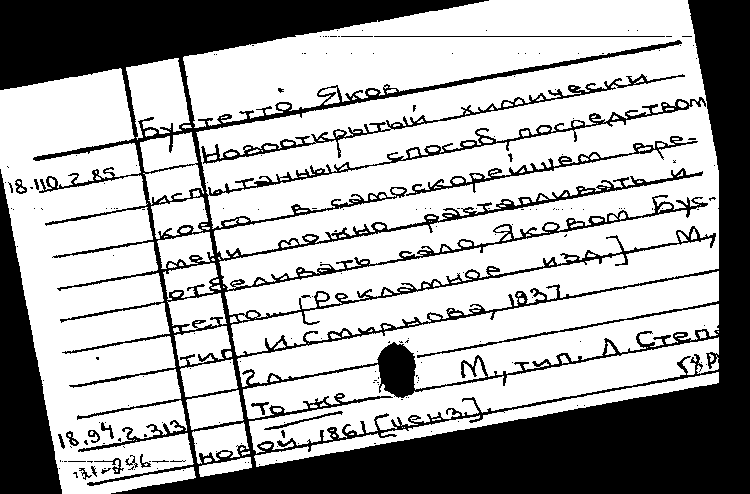 Бустетто, Яков
Новооткрытый химически
18.110.2.85
испытанный способ, посредством
коего в самоскорейшем вре-
мени можно растапливать и
отбеливать сало, Яковом Бус-
тетто... [Рекламное изд.]. М.,
тип. И. Смирнова, 1837.
2 л.
То же. М., тип. Л. Степа
18.94.2.313
новой, 1861 [ценз.].